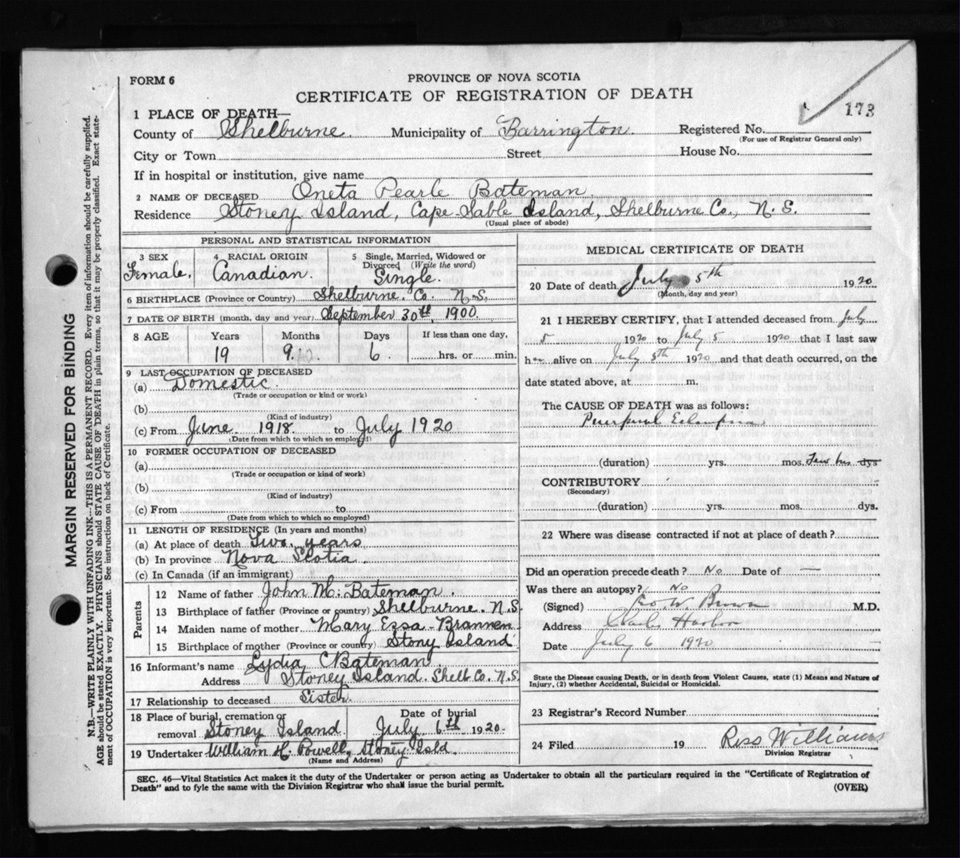 FORM 6
PROVINCE OF NOVA SCOTIA
CERTIFICATE OF REGISTRATION OF DEATH
173
1 PLACE OF DEATH—
County of Shelburne. Municipality of Barrington. Registered No.
(For use of Registrar General only)
City or Town Street House No.
If in hospital or institution, give name
2 NAME OF DECEASED Oneta Pearle Bateman
Residence Stoney Island, Cape Sable Island, Shelburne Co., N.S.
(Usual place of abode)
PERSONAL AND STATISTICAL INFORMATION
3 SEX Female.
4 RACIAL ORIGIN Canadian.
5 Single, Married, Widowed or Divorced (Write the word) Single.
6 BIRTHPLACE (Province or Country) Shelburne. Co. N.S.
7 DATE OF BIRTH (month, day and year) September 30th, 1900.
8 AGE Years Months Days If less than one day,
19 9 6 hrs. or min.
9 LAST OCCUPATION OF DECEASED
(a) Domestic.
(Trade or occupation or kind or work)
(b)
(Kind of industry)
(c) From June. 1918. to July 1920
(Date from which to which so employed)
10 FORMER OCCUPATION OF DECEASED
(a)
(Trade or occupation or kind of work)
(b)
(Kind of industry)
(c) From to
(Date from which to which so employed)
11 LENGTH OF RESIDENCE (In years and months)
(a) At place of death Two years
(b) In province Nova Scotia
(c) In Canada (if an immigrant)
Parents
12 Name of father John M. Bateman.
13 Birthplace of father (Province or country) Shelburne. N.S.
14 Maiden name of mother Mary Ezsa Brannen
15 Birthplace of mother (Province or country) Stony Island
16 Informant's name Lydia C Bateman
Address Stoney Island. Shelb Co. N.S.
17 Relationship to deceased Sister.
18 Place of burial, cremation or removal Stoney Island. Date of burial July 6th 1920.
19 Undertaker William H. Powell, Stoney Isld
(Name and Address)
MEDICAL CERTIFICATE OF DEATH
20 Date of death July 5th 1920
(Month, day and year)
21 I HEREBY CERTIFY, that I attended deceased from July
5 1920 to July 5 1920 that I last saw
h alive on July 5th 1920 and that death occurred, on the
date stated above, at m.
The CAUSE OF DEATH was as follows:
Puerperal Eclampsia
(duration) yrs. mos. few hrs dys
CONTRIBUTORY
(Secondary)
(duration) yrs. mos. dys.
22 Where was disease contracted if not at place of death?
Did an operation precede death? No Date of —
Was there an autopsy? No
(Signed) W. Brown M.D.
Address Clarks Harbor
Date July 6 1920
State the Disease causing Death, or in death from Violent Causes, state (1) Means and Nature of
Injury, (2) whether Accidental, Suicidal or Homicidal.
23 Registrar's Record Number
24 Filed 19 Ross Williams
Division Registrar
SEC. 46—Vital Statistics Act makes it the duty of the Undertaker or person acting as Undertaker to obtain all the particulars required in the "Certificate of Registration of
Death" and to fyle the same with the Division Registrar who shall issue the burial permit.
(OVER)
MARGIN RESERVED FOR BINDING
N.B.—WRITE PLAINLY WITH UNFADING INK—THIS IS A PERMANENT RECORD. Every item of information should be carefully supplied.
AGE should be stated EXACTLY. PHYSICIANS should STATE CAUSE OF DEATH in plain terms, so that it may be properly classified. Exact state-
ment of OCCUPATION is very important. See instructions on back of Certificate.